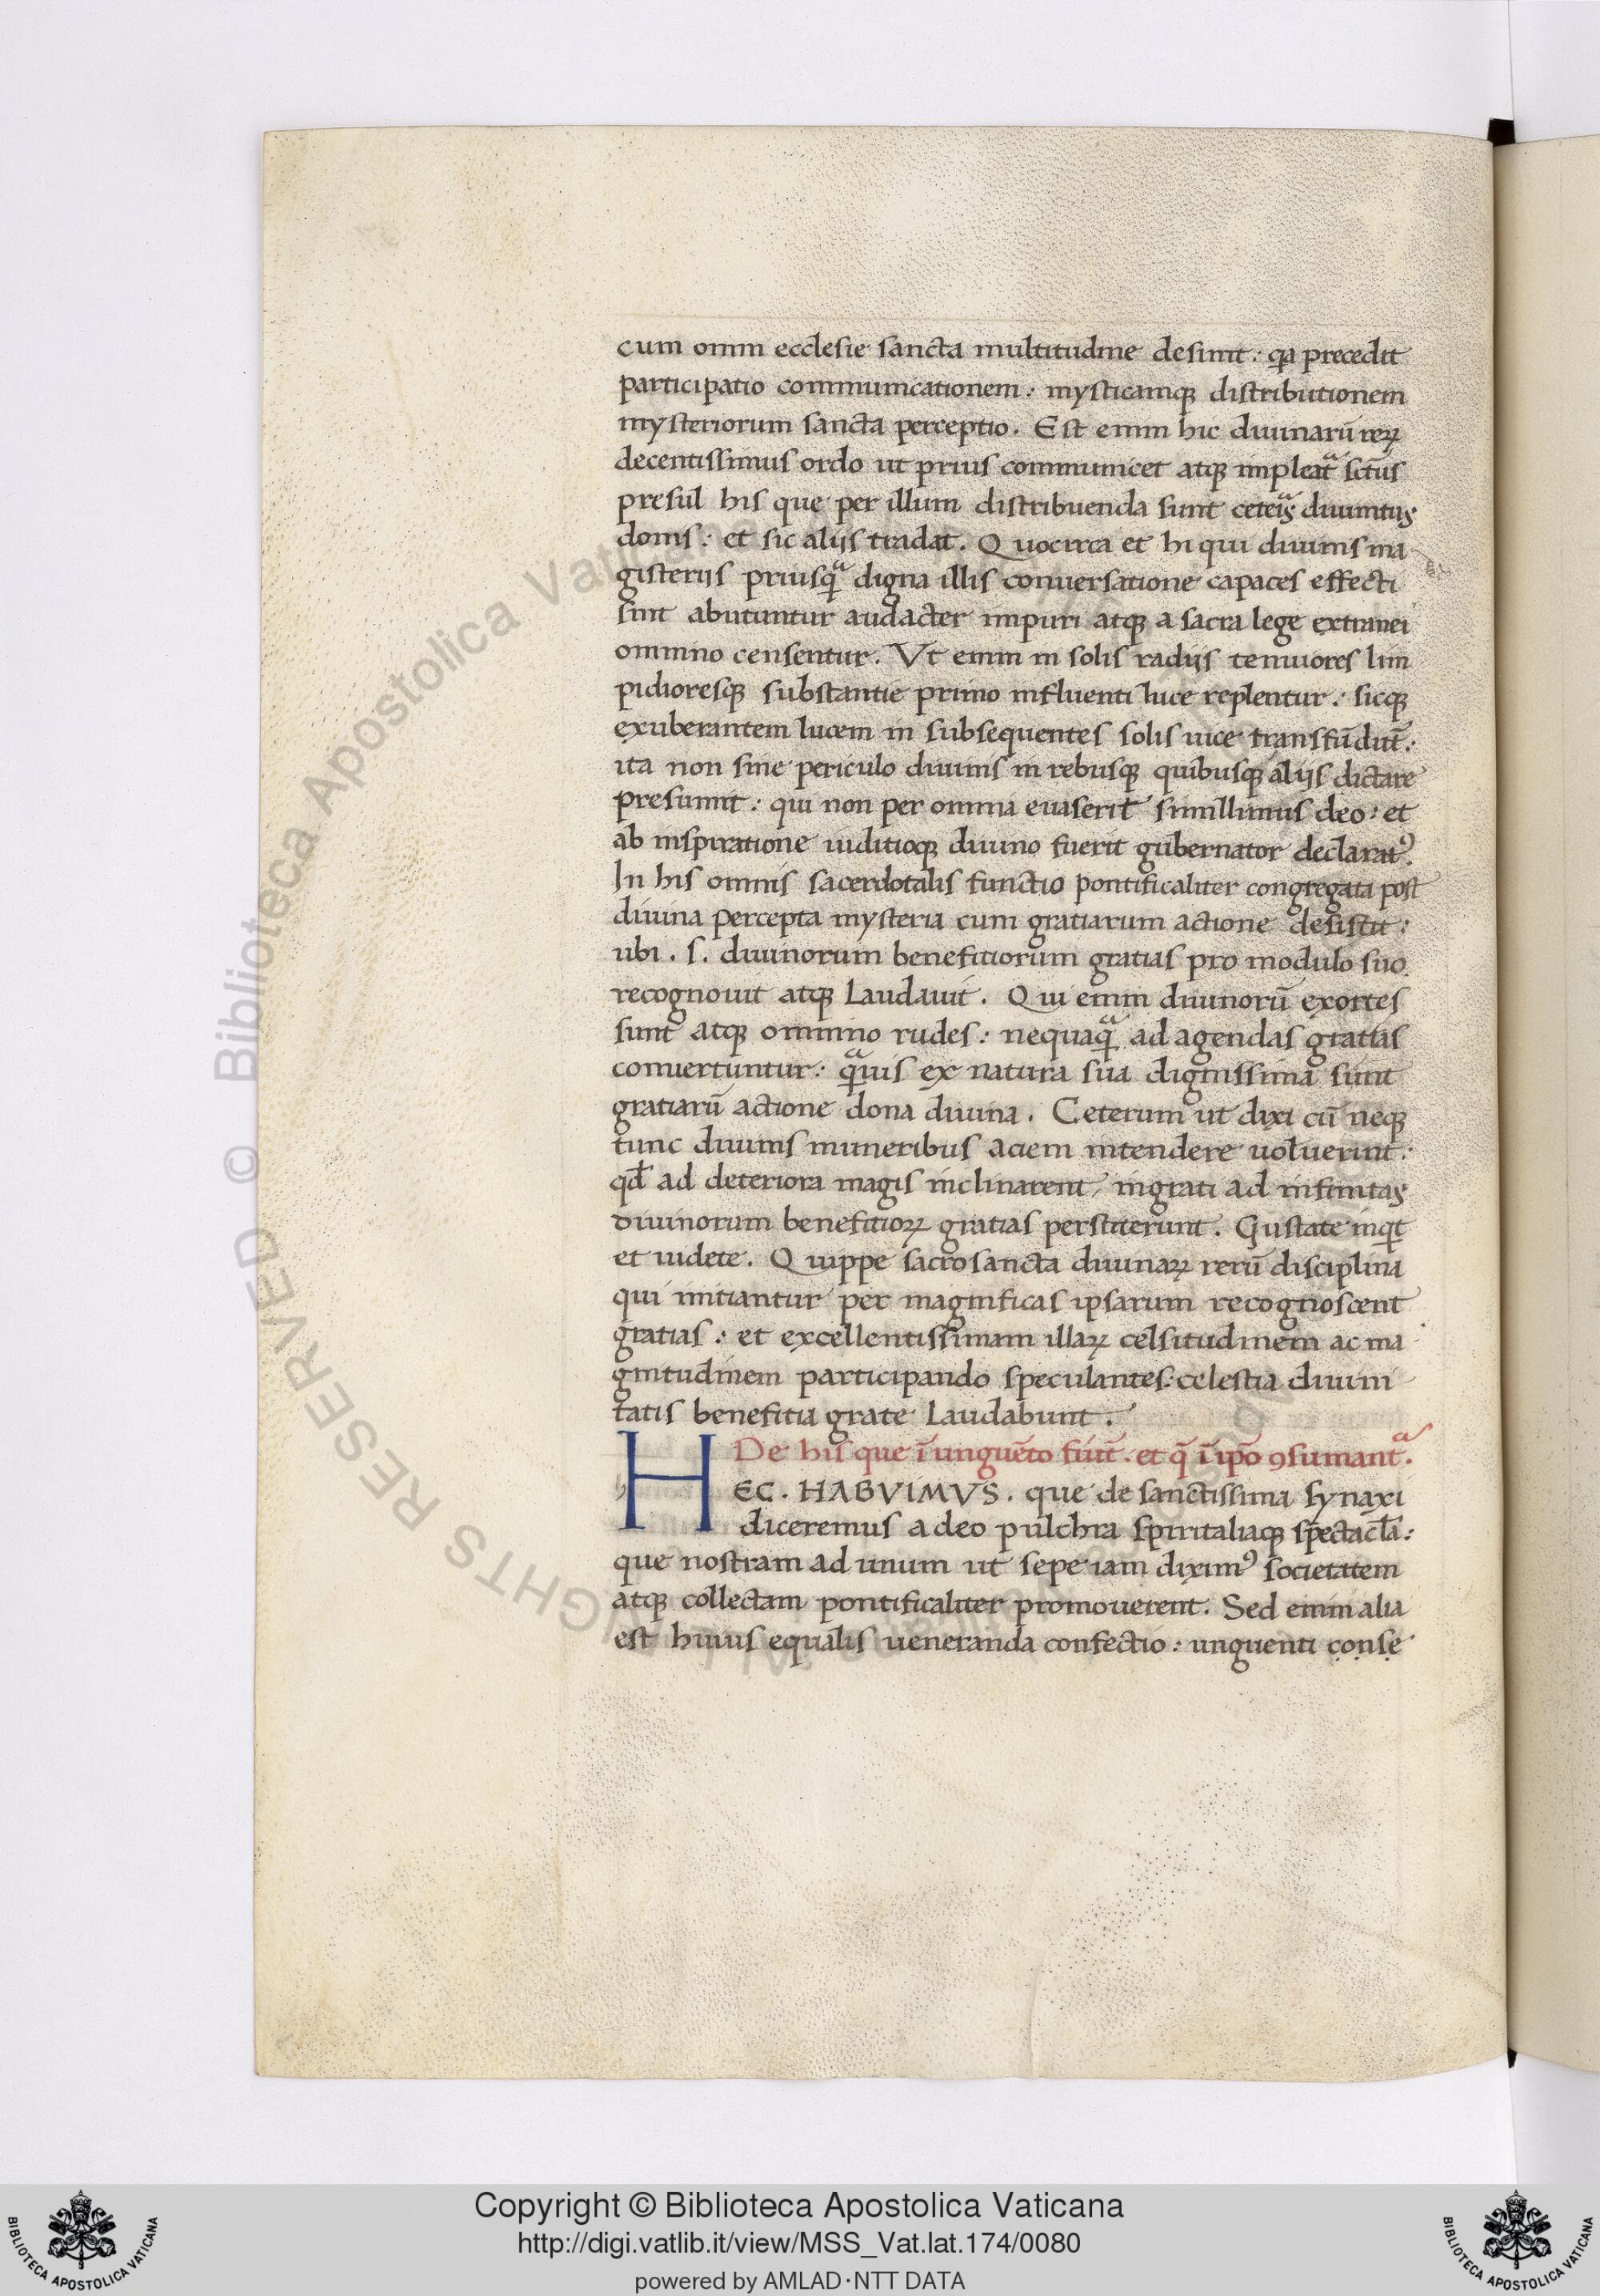 cum omni ecclesie sancta multitudine desinit: q̃a precedit
participatio communicationem: mysticamqꝫ distributionem
mysteriorum sancta perceptio. Est enim hic diuinarũ reꝝ
decentissimus ordo ut prius communicet atqꝫ impleatᷓ sctũs
presul his que per illum distribuenda sunt
donis: et sic alijs tradat. Quocirca et hi qui diuinis ma
gisterijs priusqᷓ digna illis conuersatione capaces effecti
sint abutuntur audacter impuri atqꝫ a sacra lege extranei
omnino censentur. Vt enim in solis radijs tenuiores lim
pidioresqꝫ substantie primo influenti luce replentur: sicqꝫ
exuberantem lucem in subsequentes solis uice transfũdũt:
ita non sine periculo diuinis in rebusqꝫ quibusqꝫ alijs dictare
presumit: qui non per omnia euaserit simillimus deo: et
ab inspiratione iuditioqꝫ diuino fuerit gubernator declaratꝰ.
In his omnis sacerdotalis functio pontificaliter congregata post
diuina percepta mysteria cum gratiarum actione desistit:
ubi .s. diuinorum benefitiorum gratias pro modulo suo
recognouit atqꝫ Laudauit. Qui enim diuinorũ exortes
sunt atqꝫ omnino rudes: nequaqᷓ ad agendas gratias
conuertuntur: qᷓuis ex natura sua dignissima sunt
gratiarũ actione dona diuina. Ceterum ut dixi cũ neqꝫ
tunc diuinis muneribus aciem intendere uoluerint:
qđ ad deteriora magis inclinarent, ingrati ad infinitas
diuinorum benefitioꝝ gratias perstiterunt. Gustate inqt
et uidete. Quippe sacrosancta diuinaꝝ rerũ disciplina
qui initiantur per magnificas ipsarum recognoscent
gratias: et excellentissimam illaꝝ celsitudinem ac ma
gnitudinem participando speculantes: celestia diuini
tatis benefitia grate Laudabunt.
De his que ĩ unguẽto fiũt. et q̃ ĩ ip̃o ꝯsumantᷓ.
HEC. HABVIMVS. que de sanctissima synaxi
diceremus a deo pulchra spiritaliaqꝫ spectacľa:
que nostram ad unum ut sepe iam diximꝰ societatem
atqꝫ collectam pontificaliter promouerent. Sed enim alia
est huius equalis ueneranda confectio: unguenti conse
© Biblioteca Apostolica Vaticana
ALL RIGHTS RESERVED
Copyright © Biblioteca Apostolica Vaticana
http://digi.vatlib.it/view/MSS_Vat.lat.174/0080
powered by AMLAD·NTT DATA
BIBLIOTECA APOSTOLICA VATICANA
BIBLIOTECA APOSTOLICA VATICANA